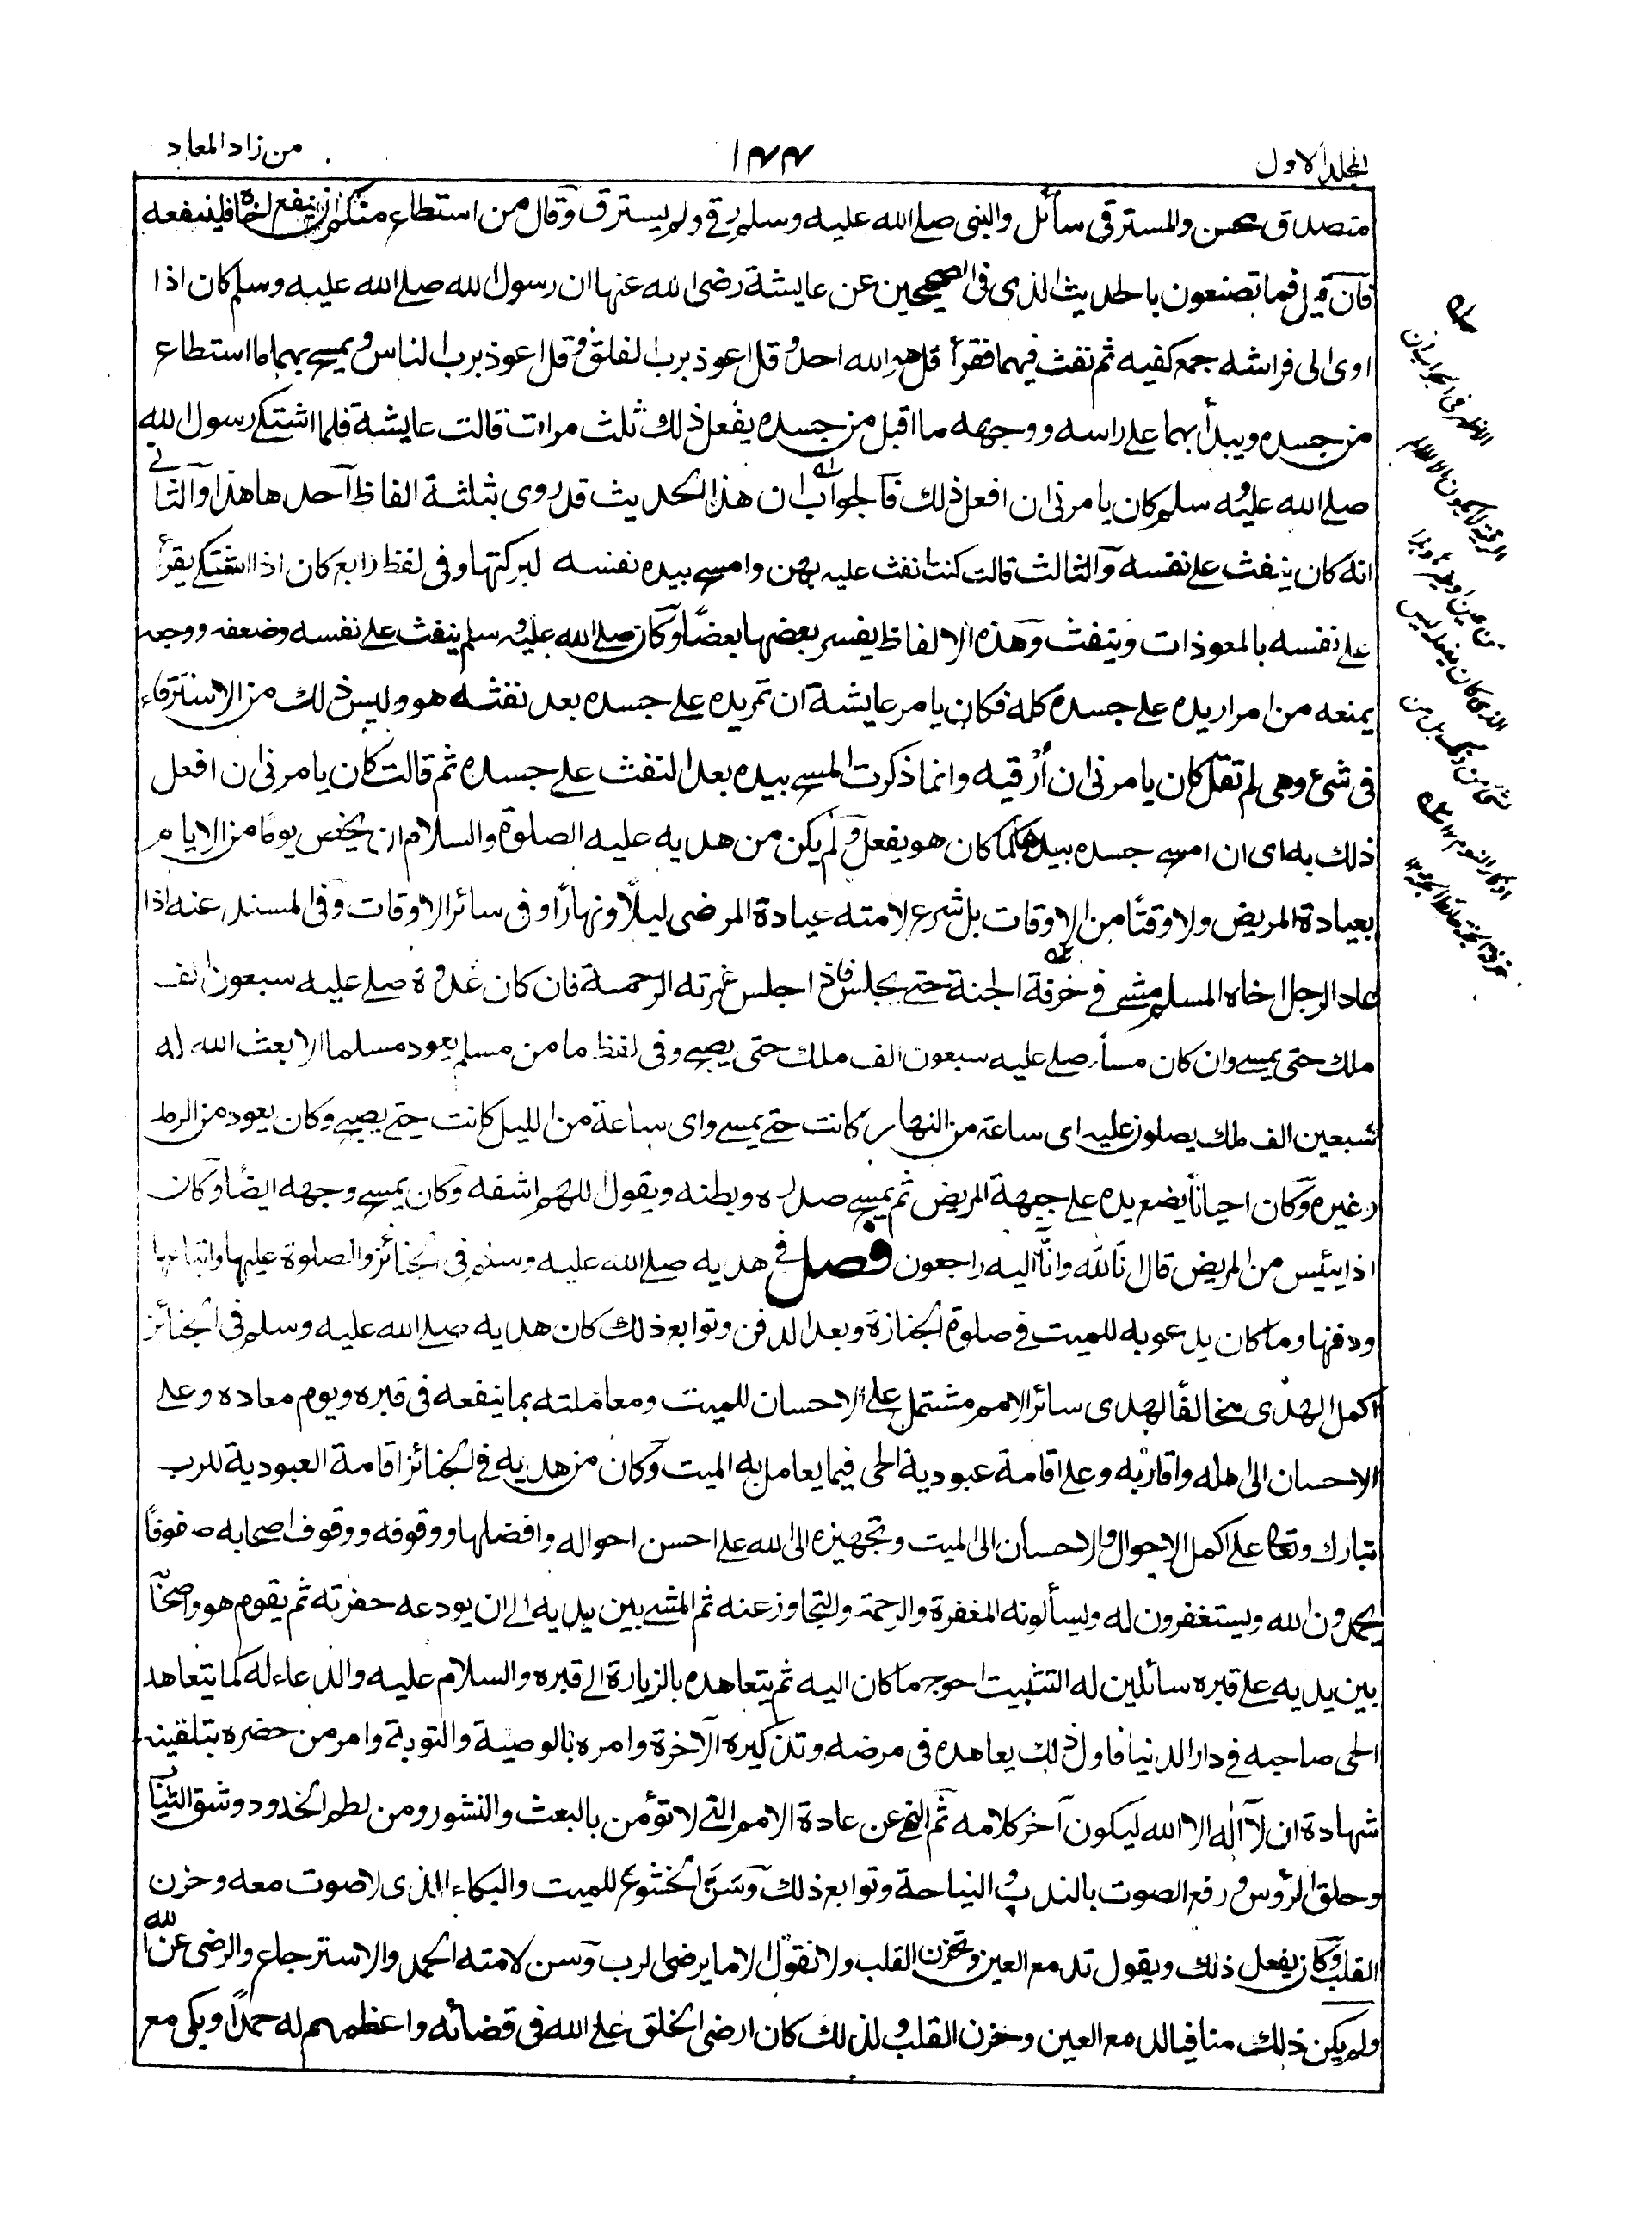 المجلد الاول
١٤٤
من زاد المعاد
متصدق محسن والمسترقى سائل والنبى صلى الله عليه وسلم رقى ولم يسترق وقال من استطاع منكم ان ينفع اخاه فلينفعه
فان قيل فما تصنعون بالحديث الذى فى الصحيحين عن عايشة رضى الله عنها ان رسول الله صلى الله عليه وسلم كان اذا
اوى الى فراشه جمع كفيه ثم نفث فيهما فقرأ قل هو الله احد وقل اعوذ برب الفلق وقل اعوذ برب الناس ويمسح بهما ما استطاع
من جسده ويبدأ بهما على راسه ووجهه ما اقبل من جسده يفعل ذلك ثلث مرات قالت عايشة فلما اشتكى رسول الله
صلى الله عليه وسلم كان يامرنى ان افعل ذلك فالجواب ان هذا الحديث قد روى بثلثة الفاظ احدها هذا والثانى
انه كان ينفث على نفسه والثالث قالت كنت انفث عليه بهن وامسح بيده نفسه لبركتها وفى لفظ رابع كان اذا اشتكى يقرأ
على نفسه بالمعوذات وينفث وهذه الالفاظ يفسر بعضها بعضا وكان صلى الله عليه وسلم ينفث على نفسه وضعفه ووجعه
يمنعه من امرار يده على جسده كله فكان يامر عايشة ان تمر يده على جسده بعد نفثه هو وليس ذلك من الاسترقاء
فى شئ وهى لم تقل كان يامرنى ان أرقيه وانما ذكرت المسح بيده بعد النفث على جسده ثم قالت كان يامرنى ان افعل
ذلك به اى ان امسح جسده بيده كما كان هو يفعل ولم يكن من هديه عليه الصلوة والسلام ان يخص يوما من الايام
بعيادة المريض ولا وقتا من الاوقات بل شرع لامته عيادة المرضى ليلا ونهارا وفى سائر الاوقات وفى المسند عنه اذا
عاد الرجل اخاه المسلم مشى فى خرفة الجنة حتى يجلس فاذا جلس غمرته الرحمة فان كان غدوة صلى عليه سبعون الف
ملك حتى يمسى وان كان مساء صلى عليه سبعون الف ملك حتى يصبح وفى لفظ ما من مسلم يعود مسلما الا بعث الله له
سبعين الف ملك يصلون عليه اى ساعة من النهار كانت حتى يمسى واى ساعة من الليل كانت حتى يصبح وكان يعود من الرمد
وغيره وكان احيانا يضع يده على جبهة المريض ثم يمسح صدره وبطنه ويقول اللهم اشفه وكان يمسح وجهه ايضا وكان
اذا يئس من المريض قال انا لله وانا اليه راجعون فصل فى هديه صلى الله عليه وسلم فى الجنائز والصلوة عليها واتباعها
ودفنها وما كان يدعو به للميت فى صلوة الجنازة وبعد الدفن وتوابع ذلك كان هديه صلى الله عليه وسلم فى الجنائز
اكمل الهدى مخالفا لهدى سائر الامم مشتمل على الاحسان للميت ومعاملته بما ينفعه فى قبره ويوم معاده وعلى
الاحسان الى اهله واقاربه وعلى اقامة عبودية الحى فيما يعامل به الميت وكان من هديه فى الجنائز اقامة العبودية للرب
تبارك وتعالى على اكمل الاحوال والاحسان الى الميت وتجهيزه الى الله على احسن احواله وافضلها ووقوفه ووقوف اصحابه صفوفا
يحمدون الله ويستغفرون له ويسألونه المغفرة والرحمة والتجاوز عنه ثم المشى بين يديه الى ان يودعه حفرته ثم يقوم هو واصحابه
بين يديه على قبره سائلين له التثبيت احوج ما كان اليه ثم يتعاهده بالزيارة الى قبره والسلام عليه والدعاء له كما يتعاهد
الحى صاحبه فى دار الدنيا فاول ذلك يعاهده فى مرضه وتذكيره الآخرة وامره بالوصية والتوبة وامر من حضره بتلقينه
شهادة ان لا اله الا الله ليكون آخر كلامه ثم النهى عن عادة الامم التى لا تؤمن بالبعث والنشور ومن لطم الخدود وشق الثياب
وحلق الرؤس ورفع الصوت بالندب والنياحة وتوابع ذلك وسَنَّ الخشوع للميت والبكاء الذى لا صوت معه وحزن
القلب وكان يفعل ذلك ويقول تدمع العين وتحزن القلب ولا نقول الا ما يرضى الرب وسن لامته الحمد والاسترجاع والرضى عن الله
ولم يكن ذلك منافيا لدمع العين وحزن القلب ولذلك كان ارضى الخلق على الله فى قضائه واعظمهم له حمدا وبكى مع